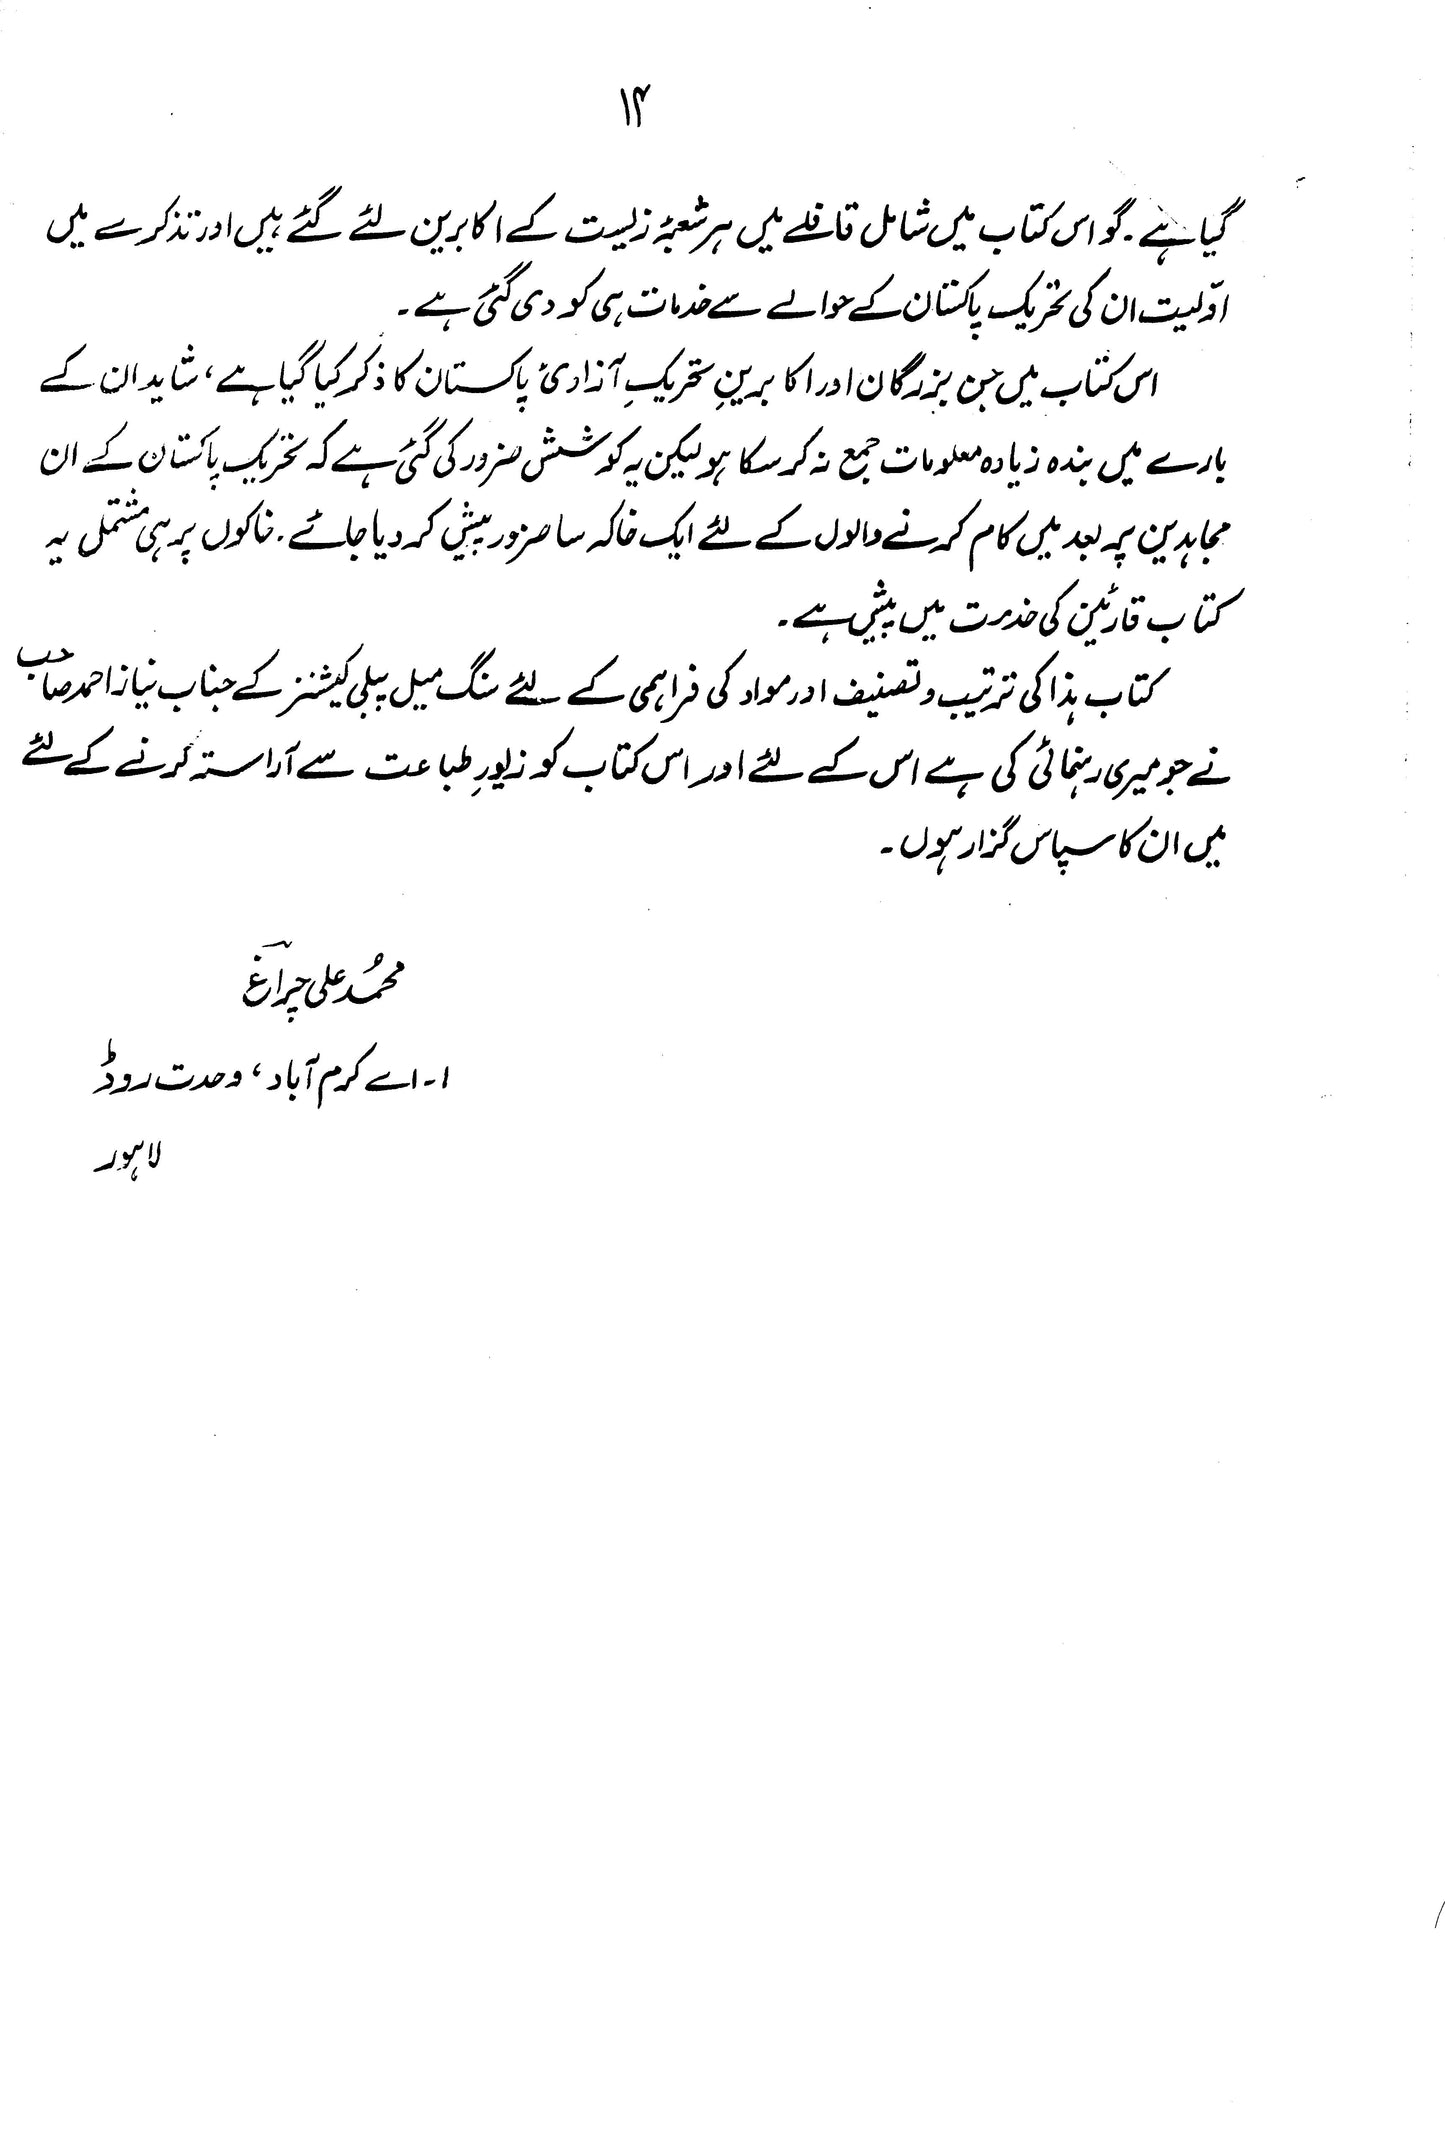 ۱۴
گیا ہے۔ گو اس کتاب میں شامل قافلے میں ہر شعبۂ زیست کے اکابرین لئے گئے ہیں اور تذکرے میں
اوّلیت ان کی تحریک پاکستان کے حوالے سے خدمات ہی کو دی گئی ہے۔
اس کتاب میں جن بزرگان اور اکابرینِ تحریکِ آزادیٔ پاکستان کا ذکر کیا گیا ہے، شاید ان کے
بارے میں بندہ زیادہ معلومات جمع نہ کر سکا ہو لیکن یہ کوشش ضرور کی گئی ہے کہ تحریک پاکستان کے ان
مجاہدین پر بعد میں کام کرنے والوں کے لئے ایک خاکہ سا ضرور پیش کر دیا جائے۔ خاکوں پر ہی مشتمل یہ
کتاب قارئین کی خدمت میں پیش ہے۔
کتاب ہذا کی ترتیب و تصنیف اور مواد کی فراہمی کے لئے سنگ میل پبلی کیشنز کے جناب نیاز احمد صاحب
نے جو میری رہنمائی کی ہے اس کے لئے اور اس کتاب کو زیورِ طباعت سے آراستہ کرنے کے لئے
میں ان کا سپاس گزار ہوں۔
محمد علی چراغ
۱۔اے کرم آباد، وحدت روڈ
لاہور